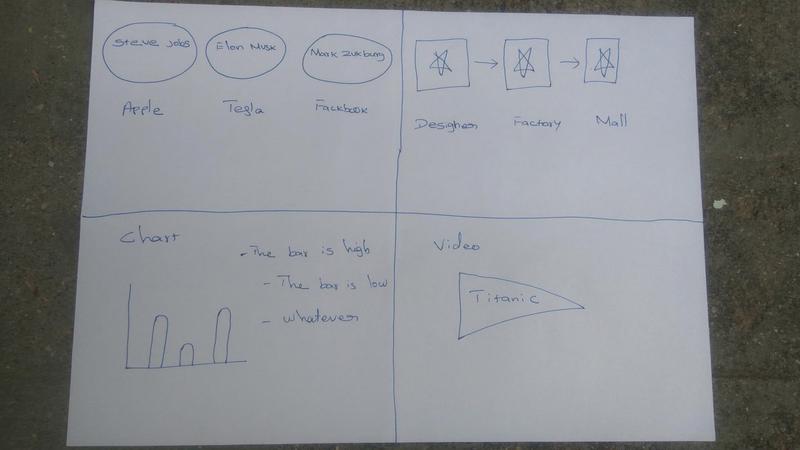 Steve Jobs Elon Musk Mark Zukburg
Apple Tesla Fackbook
Designer Factory Mall
Chart
- The bar is high
- The bar is low
- whatever
Video
Titanic